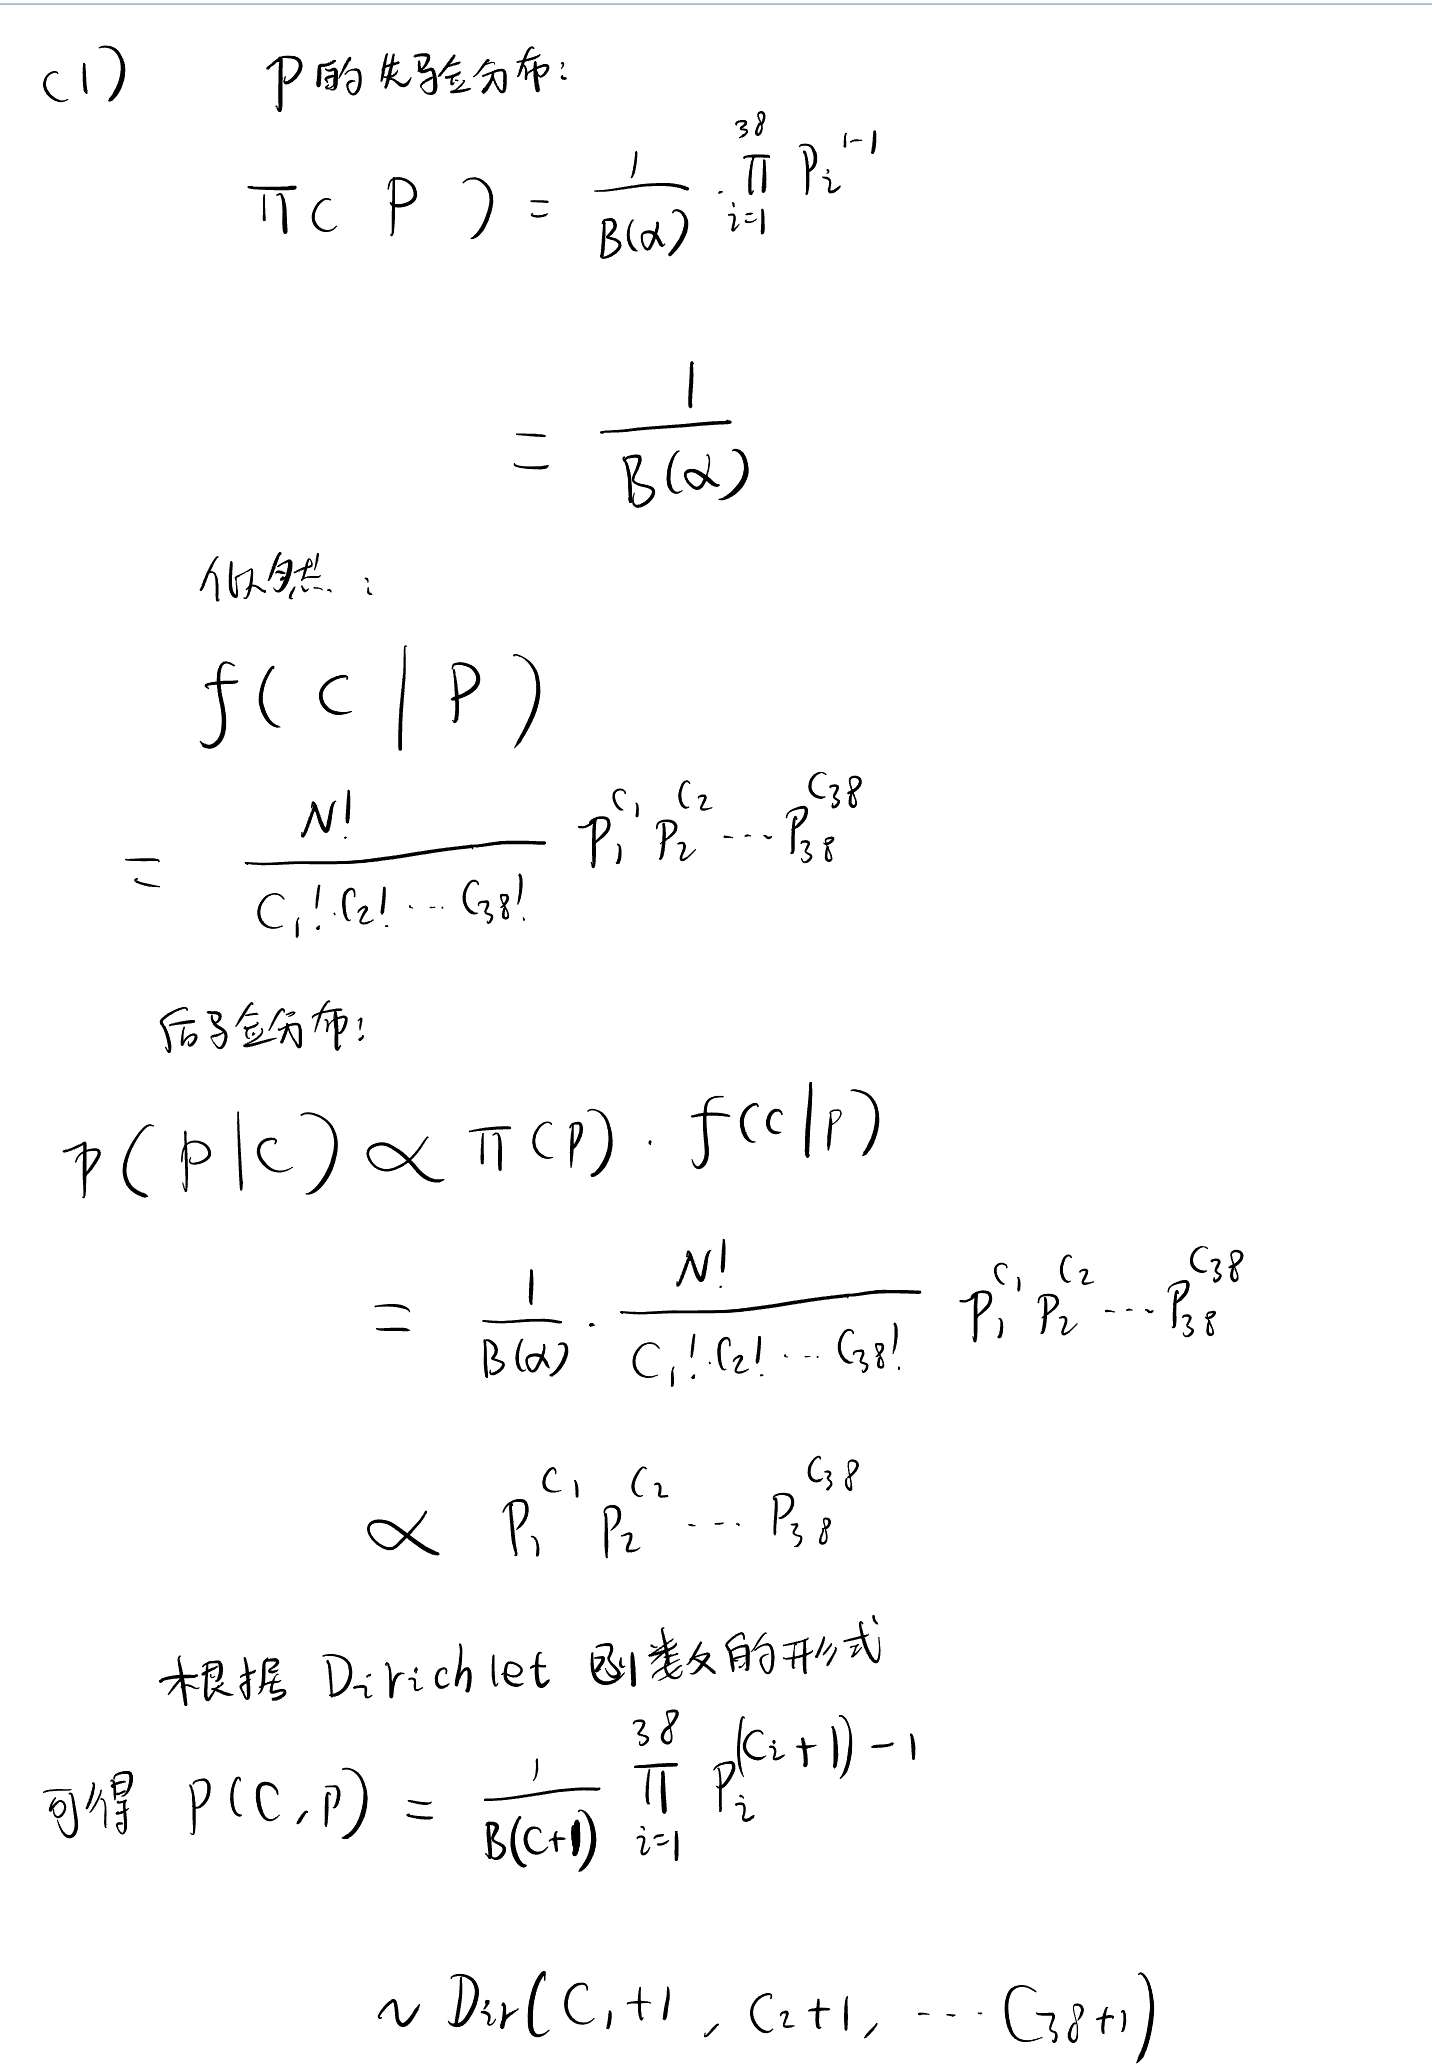 (1) P的先验分布:
π( P ) = 1/B(α) · ∏_{i=1}^{38} P_i^{1-1}
= 1/B(α)
似然:
f( C | P )
= N!/(C_1!·C_2! ... C_38!) P_1^{C_1} P_2^{C_2} ... P_38^{C_38}
后验分布:
P( P | C ) ∝ π(P) · f(C|P)
= 1/B(α) · N!/(C_1!·C_2! ... C_38!) P_1^{C_1} P_2^{C_2} ... P_38^{C_38}
∝ P_1^{C_1} P_2^{C_2} ... P_38^{C_38}
根据 Dirichlet 数的形式
可得 P(C,P) = 1/B(C+1) ∏_{i=1}^{38} P_i^{(C_i+1)-1}
~ Dir(C_1+1, C_2+1, ... C_38+1)